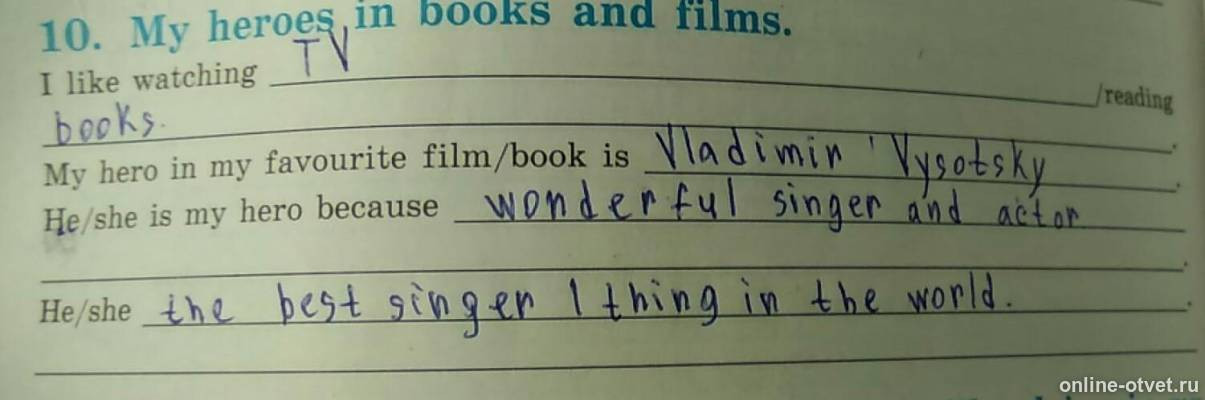 10. My heroes in books and films.
I like watching TV /reading
books.
My hero in my favourite film/book is Vladimir Vysotsky.
He/she is my hero because wonderful singer and actor
.
He/she the best singer I thing in the world.
online-otvet.ru